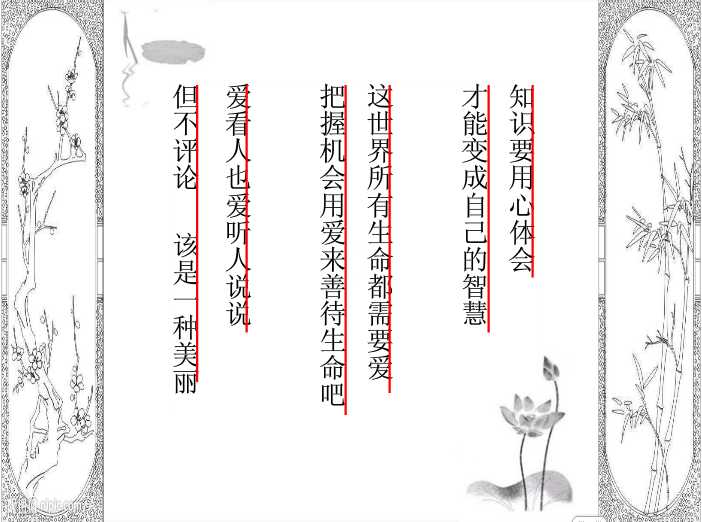 知识要用心体会
才能变成自己的智慧
这世界所有生命都需要爱
把握机会用爱来善待生命吧
爱看人也爱听人说说
但不评论 该是一种美丽